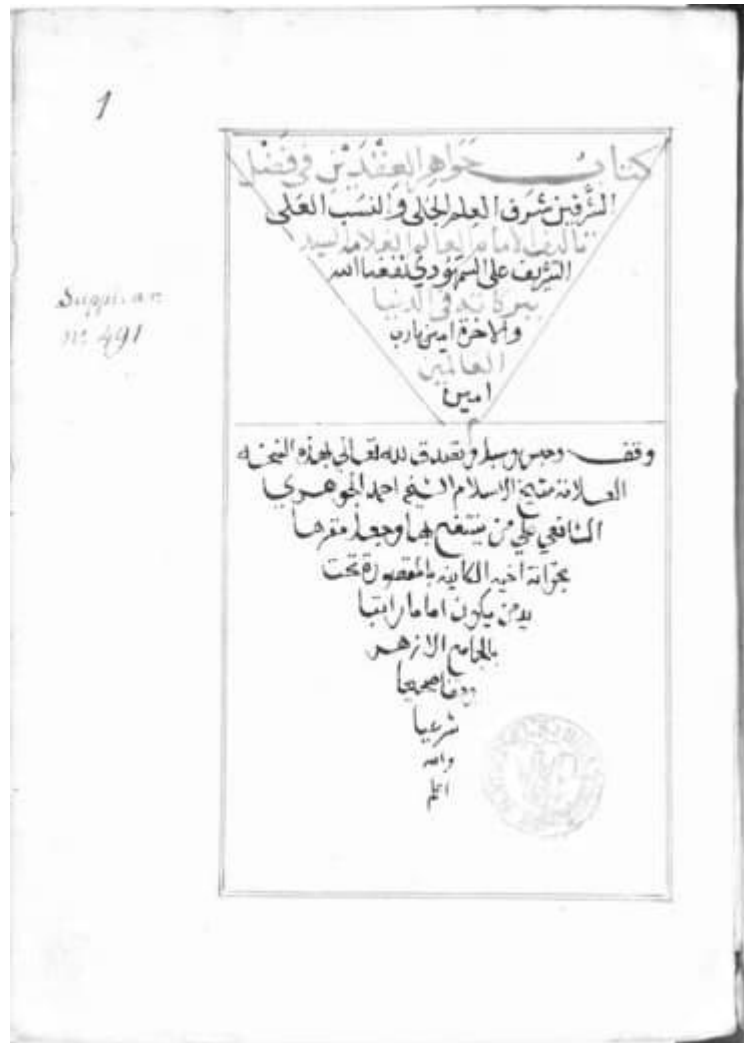 1
كتاب جواهر العقدين في فضل
الشرفين شرف العلم الجلي والنسب العلي
تاليف الامام العالم العلامه السيد
الشريف علي السمهودي نفعنا الله
ببركاته في الدنيا
والاخرة امين يارب
العالمين
امين
Suppl. ar.
nº 491
وقف وحبس وسبل وتصدق لله تعالى بهذه النسخه
العلامة شيخ الاسلام الشيخ احمد الجوهري
الشافعي علي من ينتفع بها وجعل مقرها
بخزانة اخيه الكاينه بالمقصورة تحت
يد من يكون اماما راتبا
بالجامع الازهر
وقفا صحيحا
شرعيا
والله
اعلم